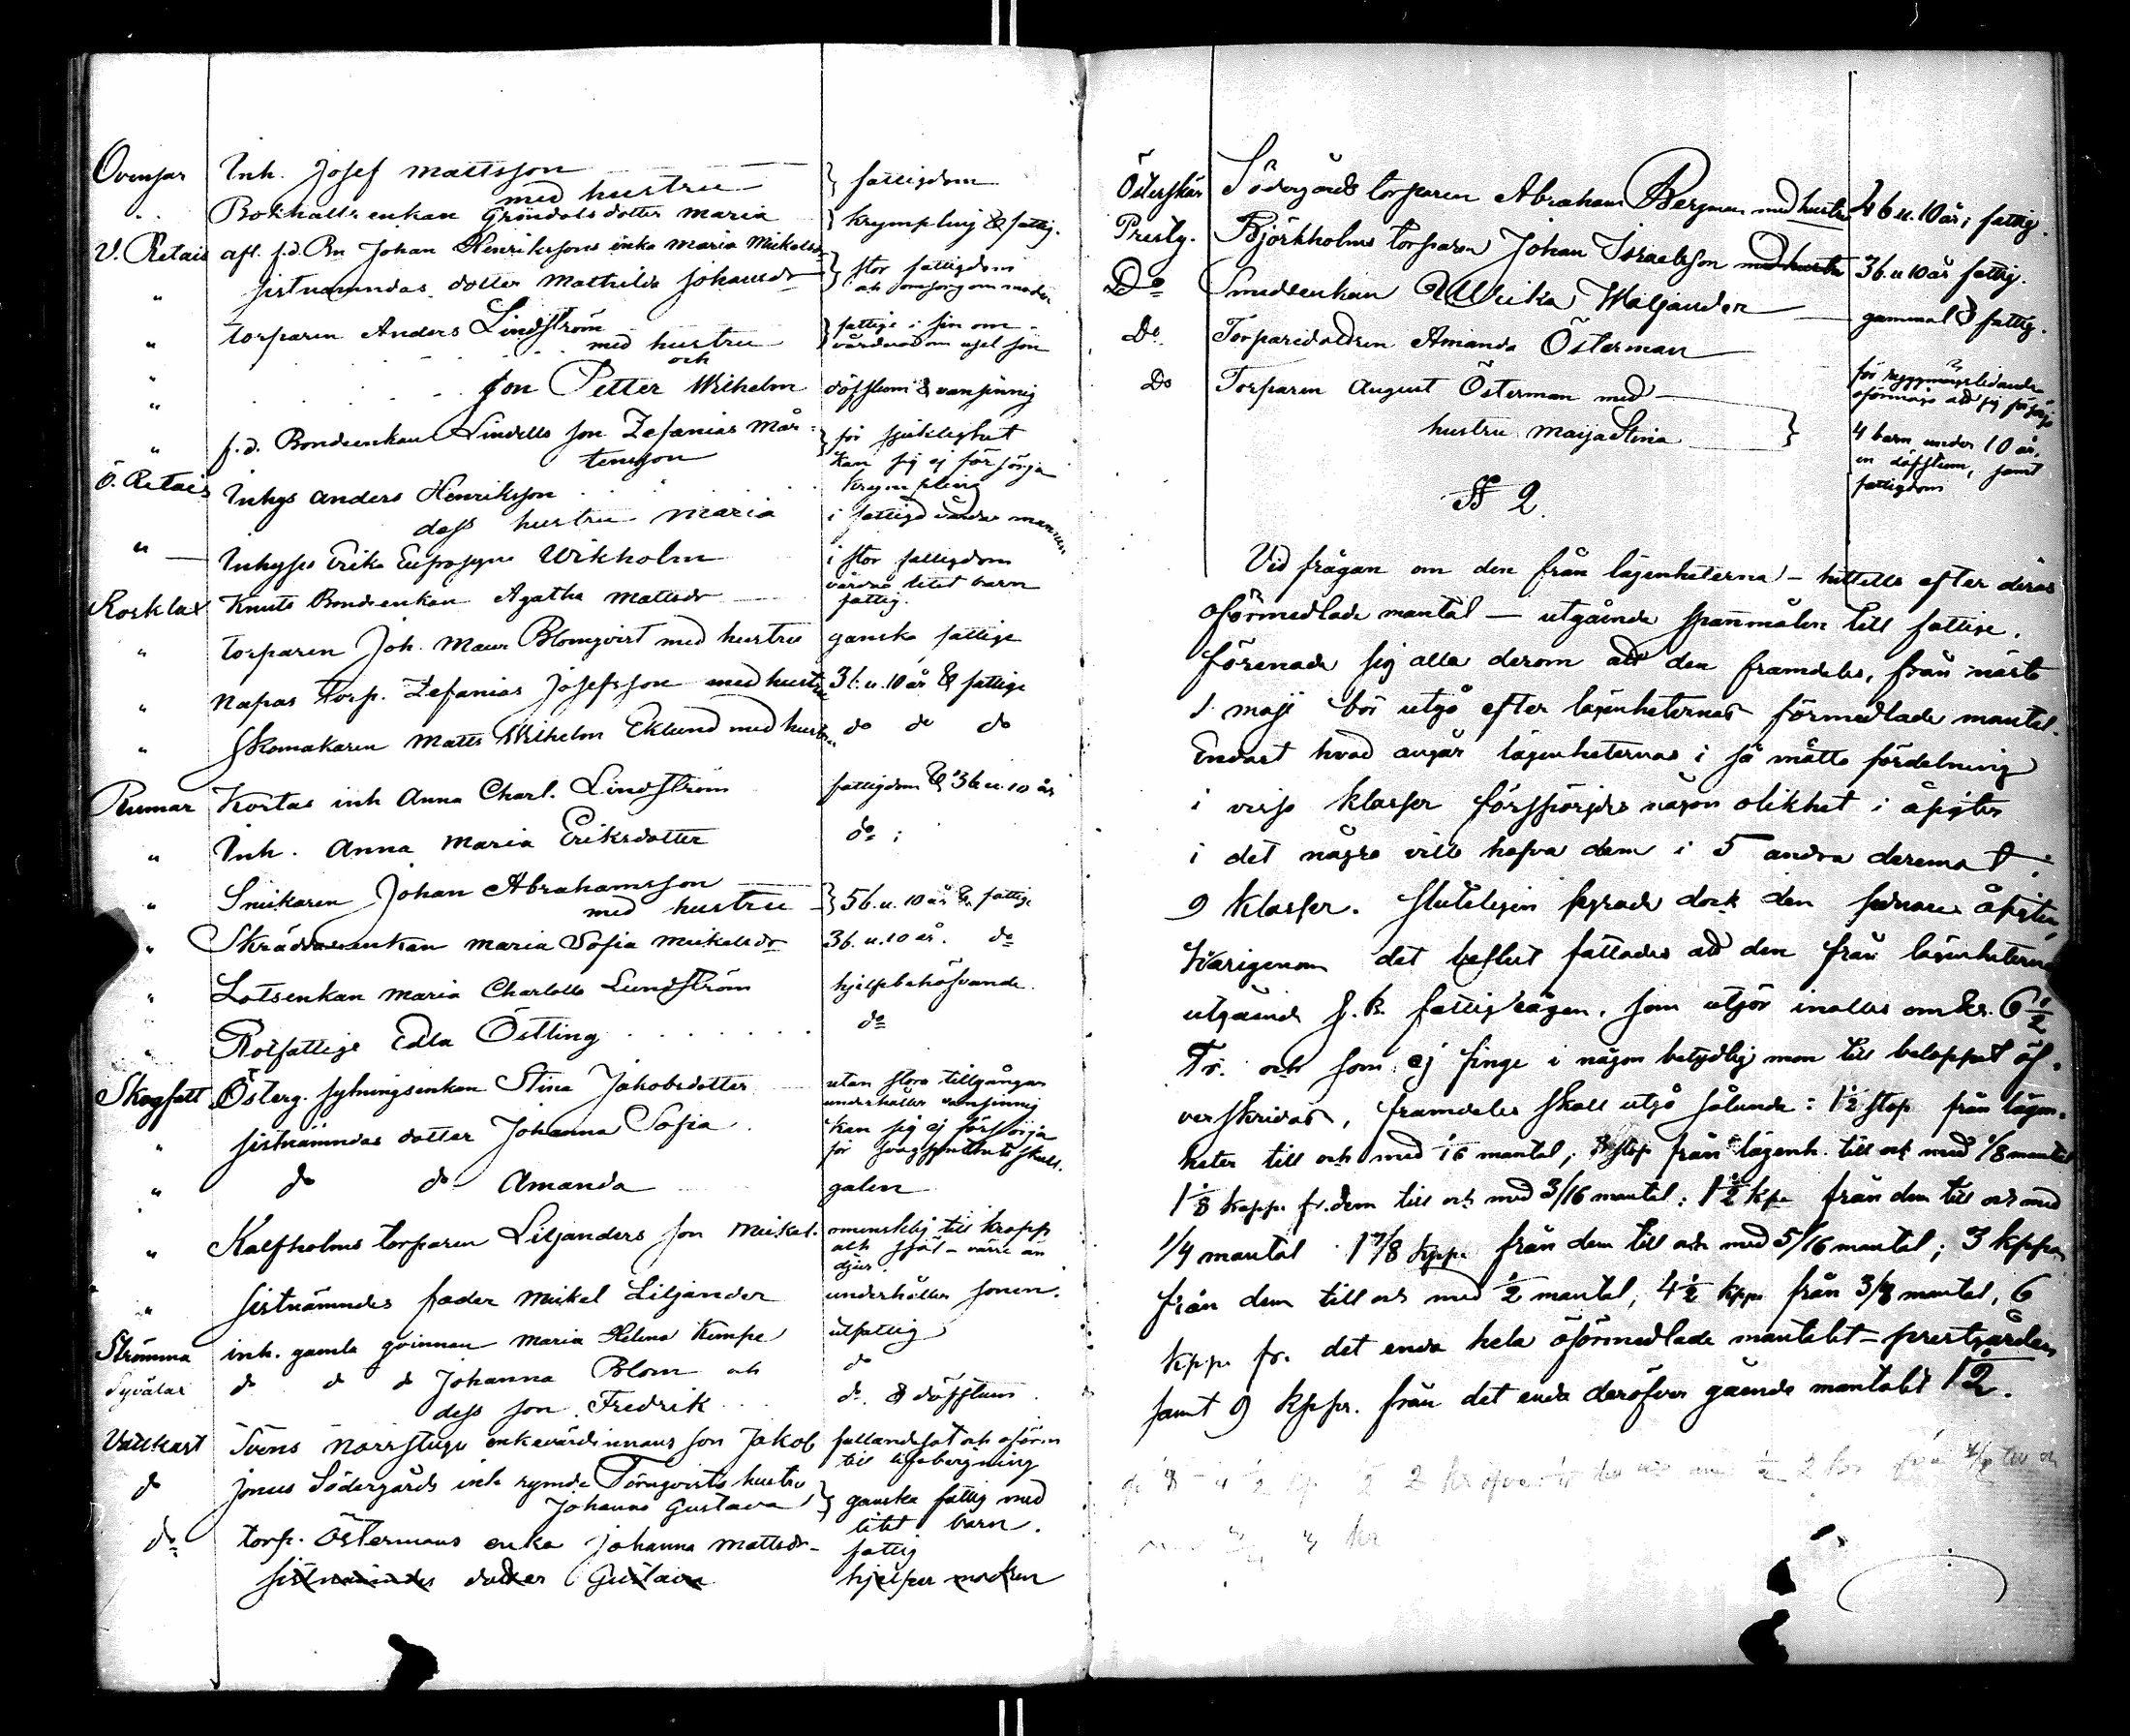 Ovensor Inh. Josef Mattsson
med hustru } fattigdom
" Bokhall: enkan Gröndals dotter Maria } krympling & fattig.
V. Retais afl. f.d. Bn Johan Henrikssons enka Maria Mickelsdr
" sistnämndas dotter Mathilda Johansdr } stor fattigdom
och omsorg om modren
" torparen Anders Lindström
med hustru } fattige i sin om-
vårdnad om usel son
" och
" son Petter Wilhelm döfstum & vansinnig
" f.d. Bondeenkan Lindells son Zefanias Mår-
tensson } för sjuklighet
kan sig ej försörja
Ö. Retais Inhys Anders Henriksson krympling
dess hustru Maria i fattigd vårdar mannen
" Inhyses Erika Eufrosyne Wikholm i stor fattigdom
vårdar litet barn
Rosklax Knuts Bondeenkan Agatha Mattsdr fattig.
" torparen Joh. Maur Blomqvist med hustru ganska fattige
" Napas torp. Zefanias Josefsson med hustru 3 b. u. 10 år & fattige
" Skomakaren Matts Wilhelm Eklund med hustru do do do
Rumar Kortas inh Anna Charl. Lindström fattigdom & 3 b u. 10 år
" Inh. Anna Maria Eriksdotter do ;
" Snikaren Johan Abrahamsson
med hustru } 5 b. u. 10 år & fattige
" Skräddareenkan Maria Sofia Mickelsdr 3 b. u. 10 år. do
" Lotsenkan Maria Charlotta Lundström hjelpbehöfvande.
" Rotfattige Edla Östling do
Skogfatt Österg. sytningsenkan Stina Jakobsdotter utan stora tillgångar
underhåller vansinnig
" sistnämndas dotter Johanna Sofia kan sig ej försörja
för svagsinthets skull.
" do do Amanda galen
" Kalfholms torparen Liljanders son Mickel. omensklig till kropp
och själ - värre än
djur
" sistnämndes fader Mickel Liljander underhåller sonen.
Strömma inh. gamla qvinnan Maria Helena Kempe utfattig
Syvälax do do do Johanna Blom och do
dess son Fredrik do & döfstum
Vattkast Svens Norrstugu enkevärdinnans son Jakob fallandesot och oförm
till lifsbergning
do Jonus Södergårds inh rymde Törnqvists hustru
Johanna Gustava } ganska fattig med
litet barn.
do torp. Östermans enka Johanna Mattsdr fattig
sistnämndes dotter Gustava hjelper modren
Österskär Södergårds torparen Abraham Bergman med hustru 4 b u. 10 år; fattig.
Prestg. Björkholms torparen Johan Israelsson med hustru 3 b. u 10 år fattig.
Do Smedsenkan Ulrika Maljander gammal & fattig.
Do Torparedottren Amanda Österman för ryggmärgslidande
oförmögen att sig försörja
Do Torparen August Österman med
hustru Maija Stina } 4 barn under 10 år,
en döfstum, samt
fattigdom
§ 2.
Vid frågan om den från lägenheterna - hittills efter deras
oförmedlade mantal - utgående spanmålen till fattige.
förenade sig alla derom att den framdeles, från nästa
1 maji bör utgå efter lägenheternas förmedlade mantal.
Endast hvad angår lägenheternas i så måtto fördelning
i vissa klasser försporjdes någon olikhet i åsigter
i det några ville hafva dem i 5 andra deremot i
9 klasser. Sluteligen segrade dock den sednare åsigten,
hvarigenom det beslut fattades att den från lägenheterna
utgående s. k. fattigvågen, som utgör inalles omkr. 6 1/2
Tr. och som ej finge i någon betydlig mon till beloppet öf-
verskridas, framdeles skall utgå sålunda: 1 1/2 stop från lägen-
heter till och med 1/16 mantal; stop från lägenh. till och med 1/8 mantal
1 1/8 kappe fr. dem till och med 3/16 mantal: 1 1/2 kpe från dem till och med
1/4 mantal 1 7/8 kppe från dem till och med 5/16 mantal; 3 kppar
från dem till och med 1/2 mantal, 4 1/2 kppe från 3/8 mantal, 6
kppr fr. det enda hela oförmedlade mantalet - prestgården
samt 9 kppr. från det enda deröfver gående mantalet 1 1/2.